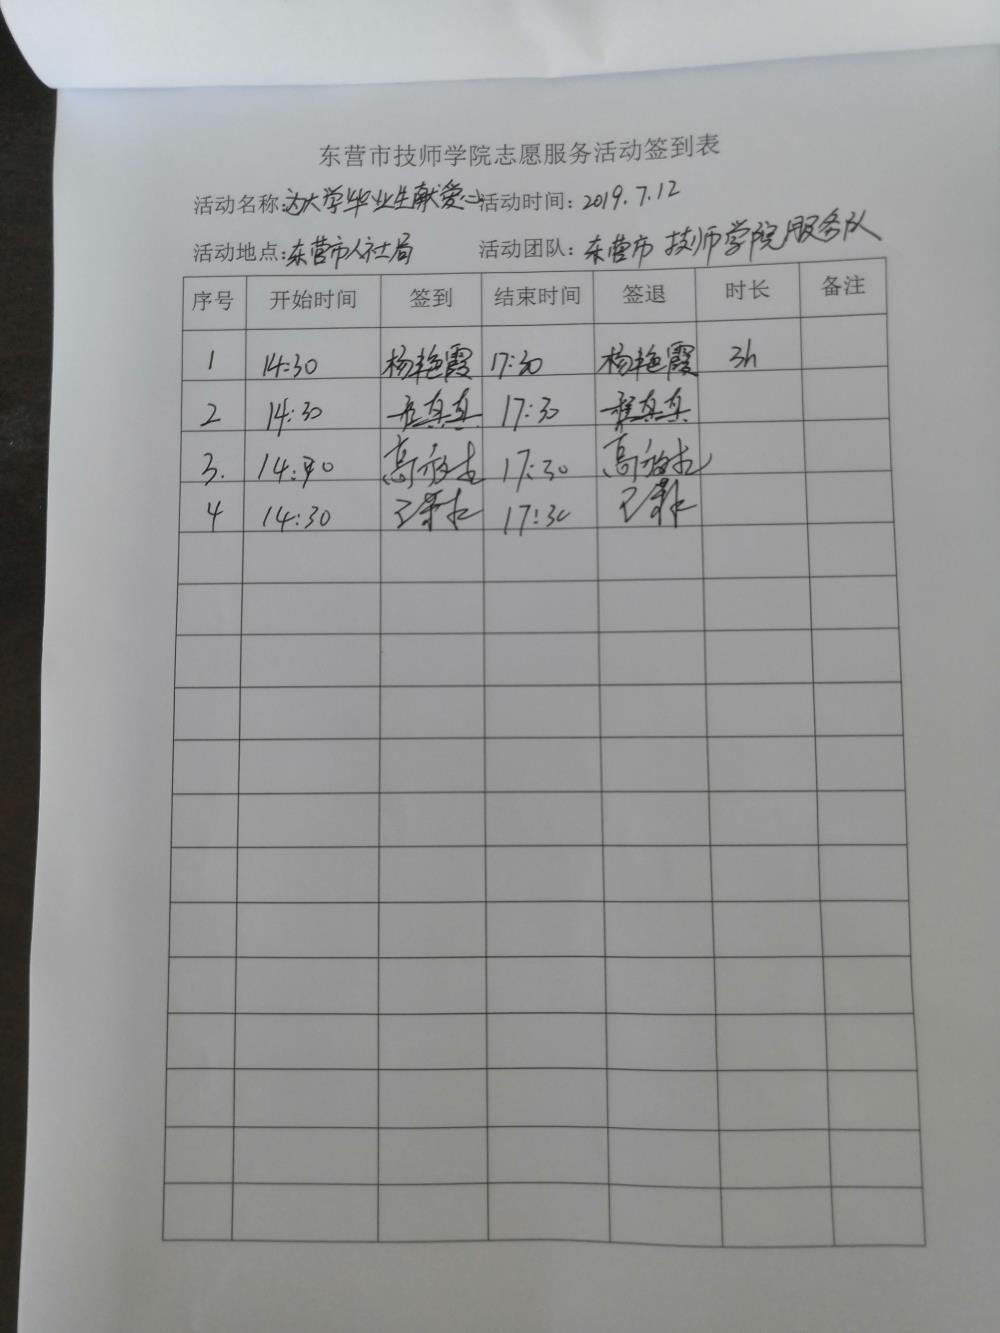 东营市技师学院志愿服务活动签到表
活动名称:为大学毕业生献爱心 活动时间: 2019.7.12
活动地点:东营市人社局 活动团队: 东营市技师学院服务队
序号 开始时间 签到 结束时间 签退 时长 备注
1 14:30 杨艳霞 17:30 杨艳霞 3h
2 14:30 真真 17:30 程真真
3. 17:30
4 14:30 17:30